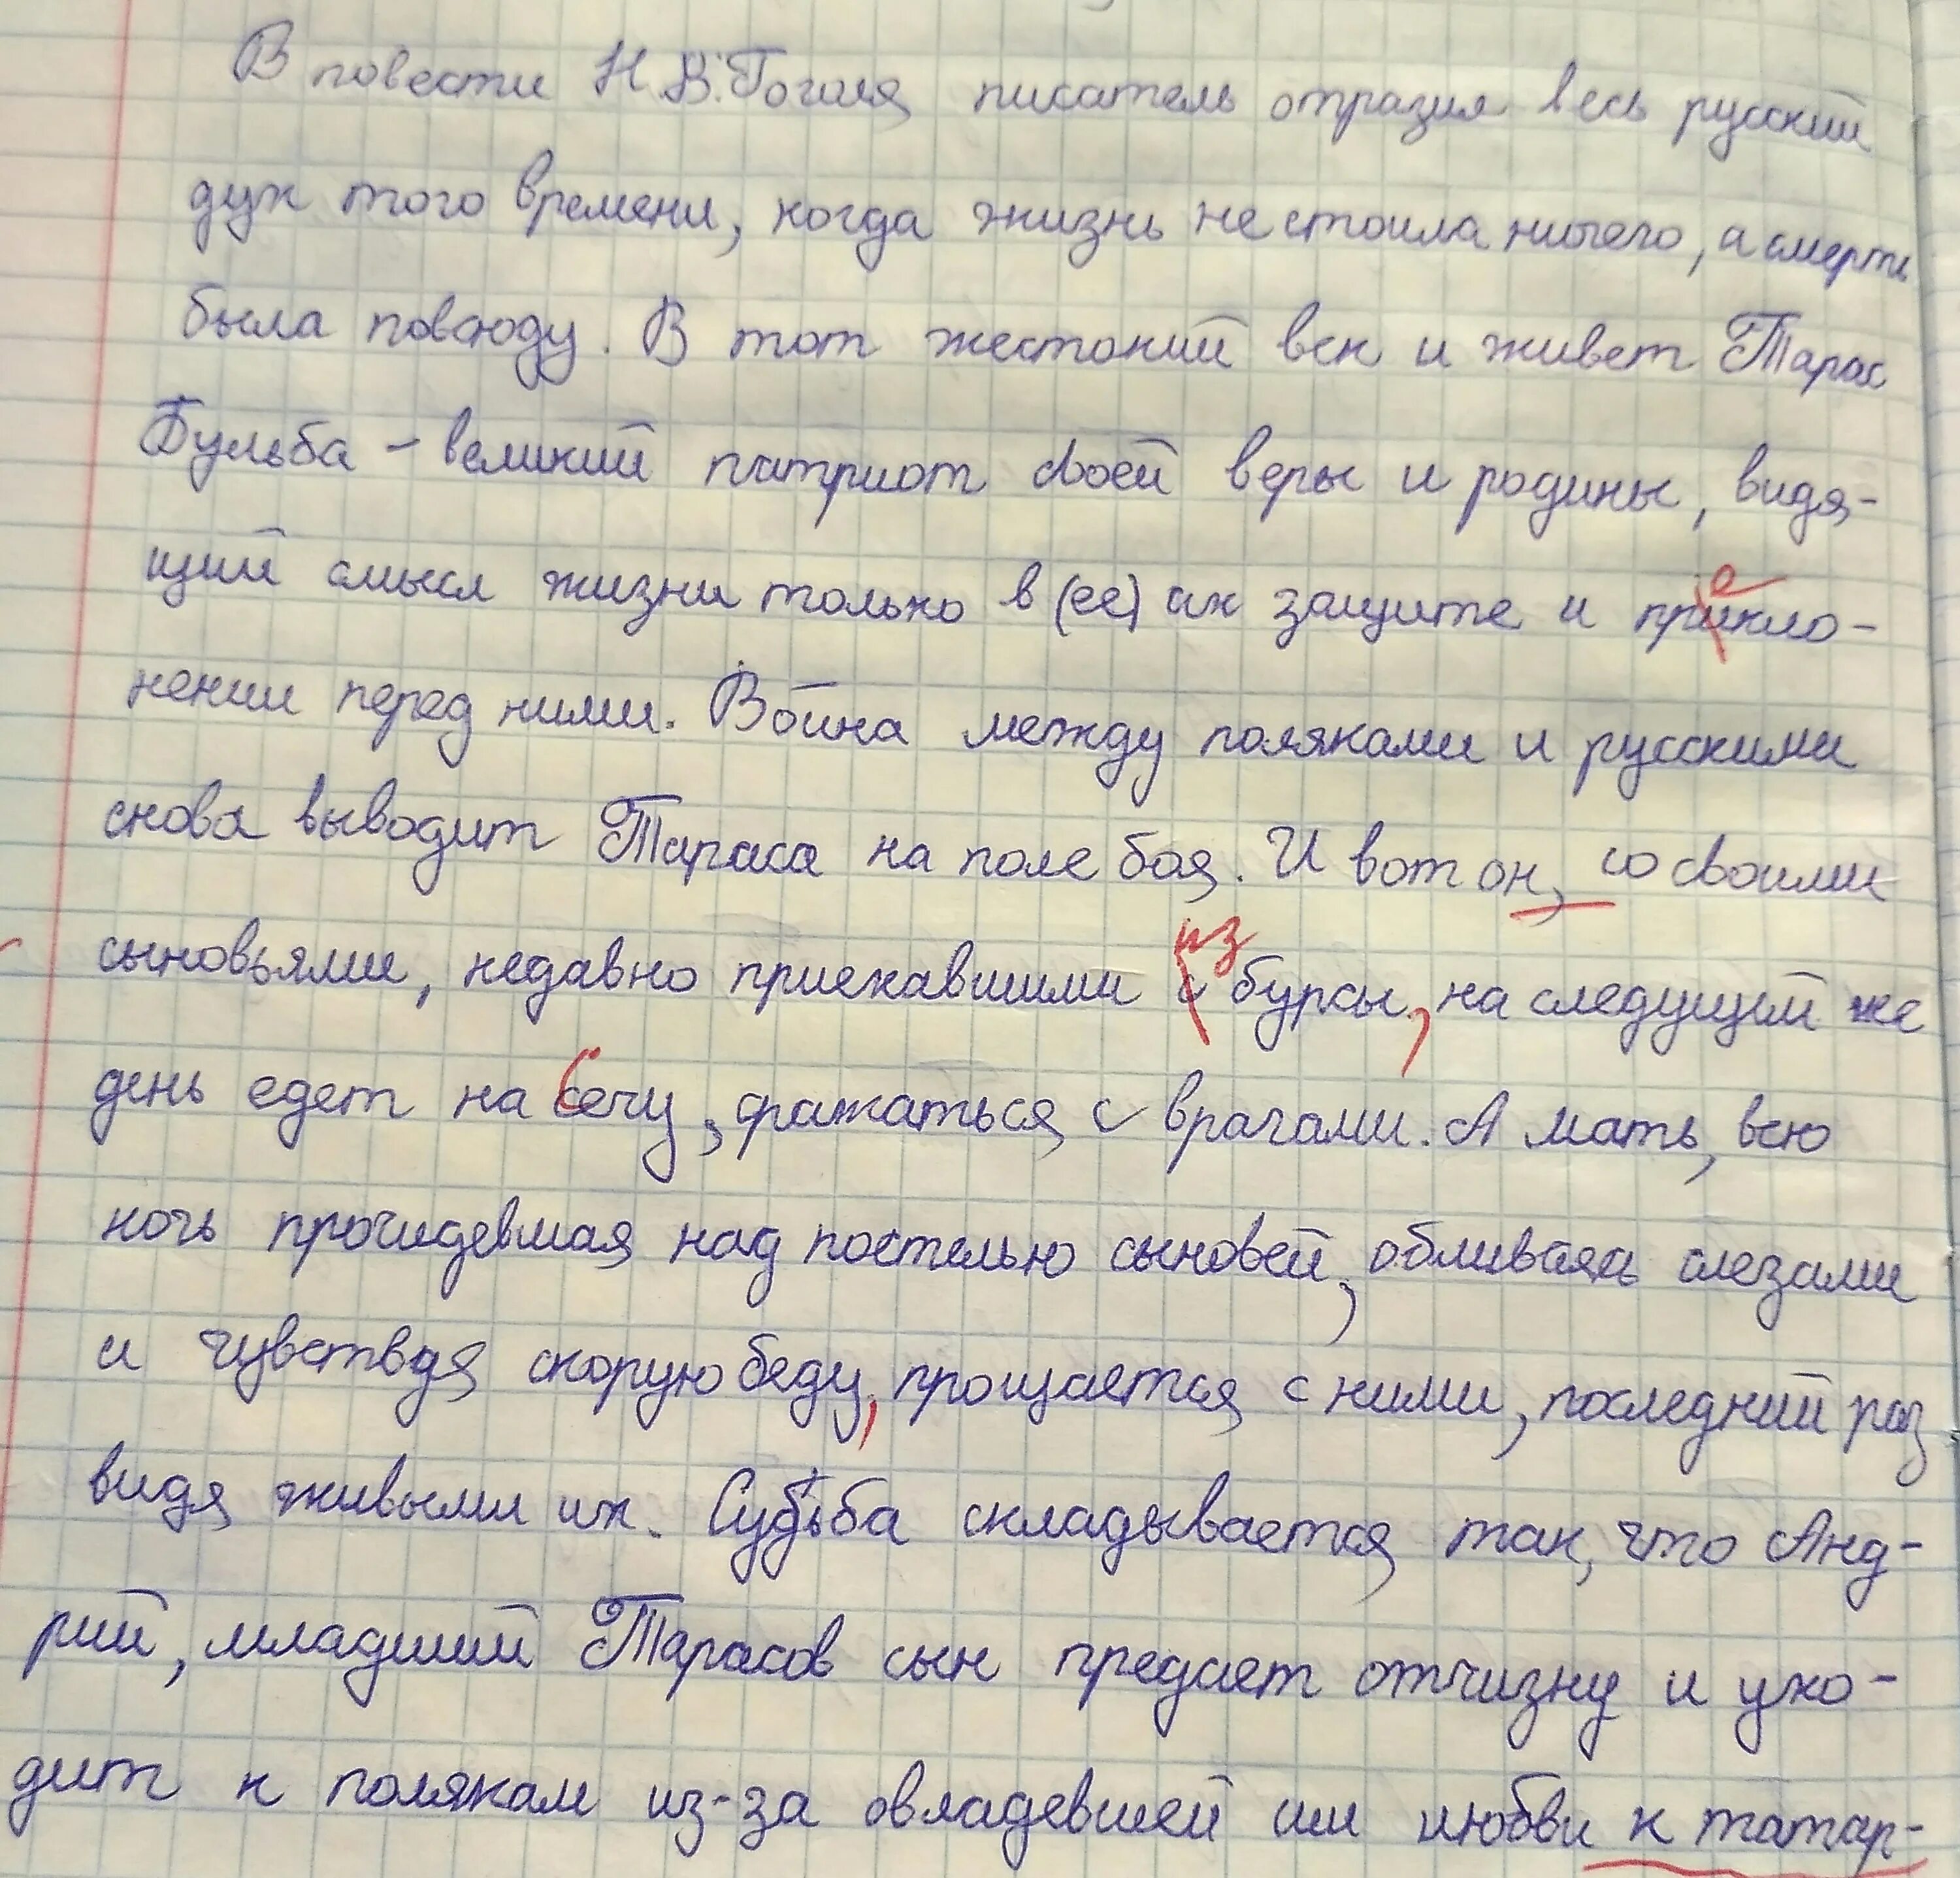 В повести Н.В.Гоголя писатель отразил весь русский
дух того времени, когда жизнь не стоила ничего, а смерть
была повсюду. В тот жестокий век и живет Тарас
Бульба – великий патриот своей веры и родины, видя-
щий смысл жизни только в (ее) их защите и прикло-
нении перед ними. Война между поляками и русскими
снова выводит Тараса на поле боя. И вот он, со своими
сыновьями, недавно приехавшими с из бурсы, на следущий же
день едет на Сечу, сражаться с врагами. А мать, всю
ночь просидевшая над постелью сыновей, обливаясь слезами
и чувствуя скорую беду, прощается с ними, последний раз
видя живыми их. Судьба складывается так, что Анд-
рий, младший Тарасов сын предает отчизну и ухо-
дит к полякам из-за овладевшей им любви к татар-